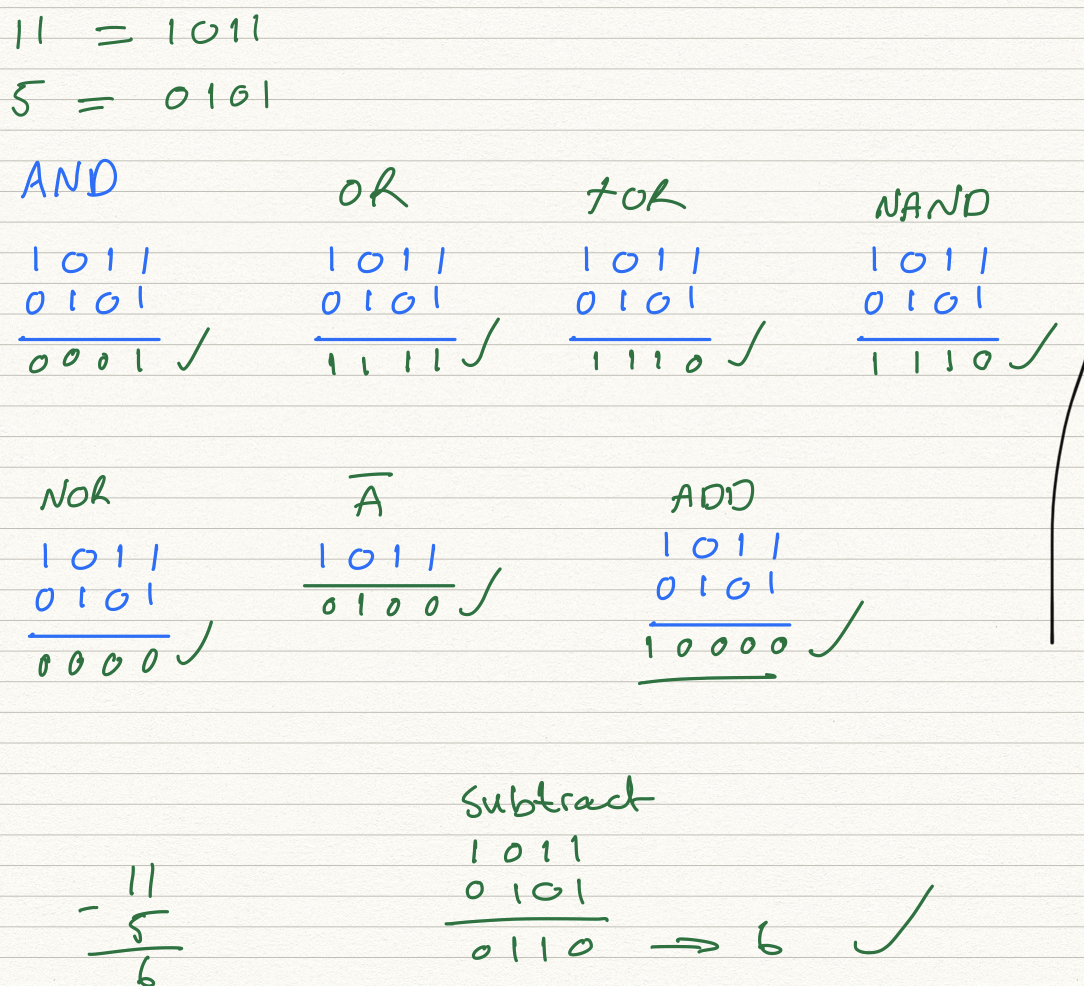 11 = 1011
5 = 0101
AND
1011
0101
0001 ✓
OR
1011
0101
1111 ✓
XOR
1011
0101
1110 ✓
NAND
1011
0101
1110 ✓
NOR
1011
0101
0000 ✓
A̅
1011
0100 ✓
ADD
1011
0101
10000 ✓
11
- 5
6
Subtract
1011
0101
0110 ⇒ 6 ✓